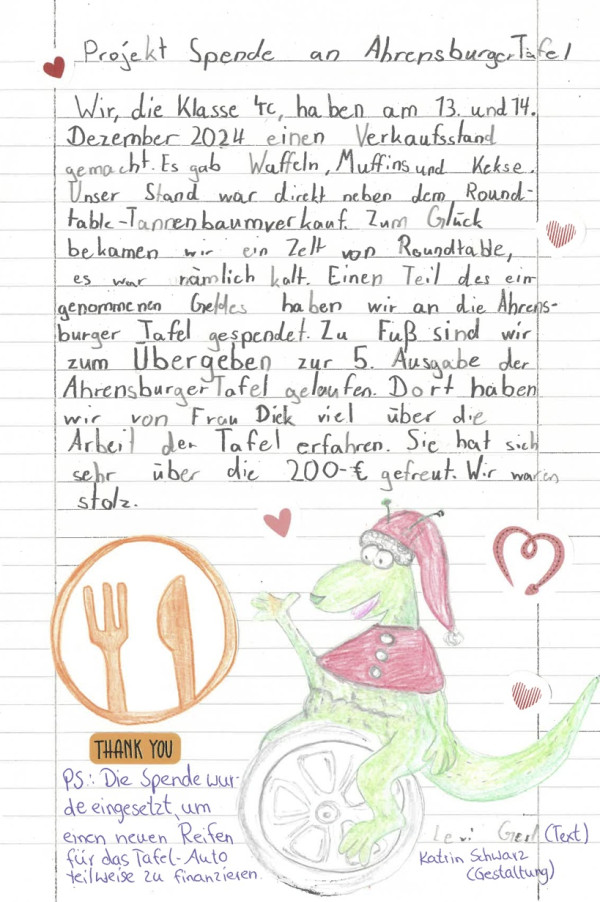 Projekt Spende an Ahrensburger Tafel
Wir, die Klasse 4c, haben am 13. und 14.
Dezember 2024 einen Verkaufsstand
gemacht. Es gab Waffeln, Muffins und Kekse.
Unser Stand war direkt neben dem Round-
table-Tannenbaumverkauf. Zum Glück
bekamen wir ein Zelt von Roundtable,
es war nämlich kalt. Einen Teil des ein
genommenen Geldes haben wir an die Ahrens-
burger Tafel gespendet. Zu Fuß sind wir
zum Übergeben zur 5. Ausgabe der
Ahrensburger Tafel gelaufen. Dort haben
wir von Frau Dick viel über die
Arbeit der Tafel erfahren. Sie hat sich
sehr über die 200-€ gefreut. Wir waren
stolz.
THANK YOU
PS.: Die Spende wur-
de eingesetzt, um
einen neuen Reifen
für das Tafel-Auto
teilweise zu finanzieren.
Levi (Text)
Katrin Schwarz
(Gestaltung)